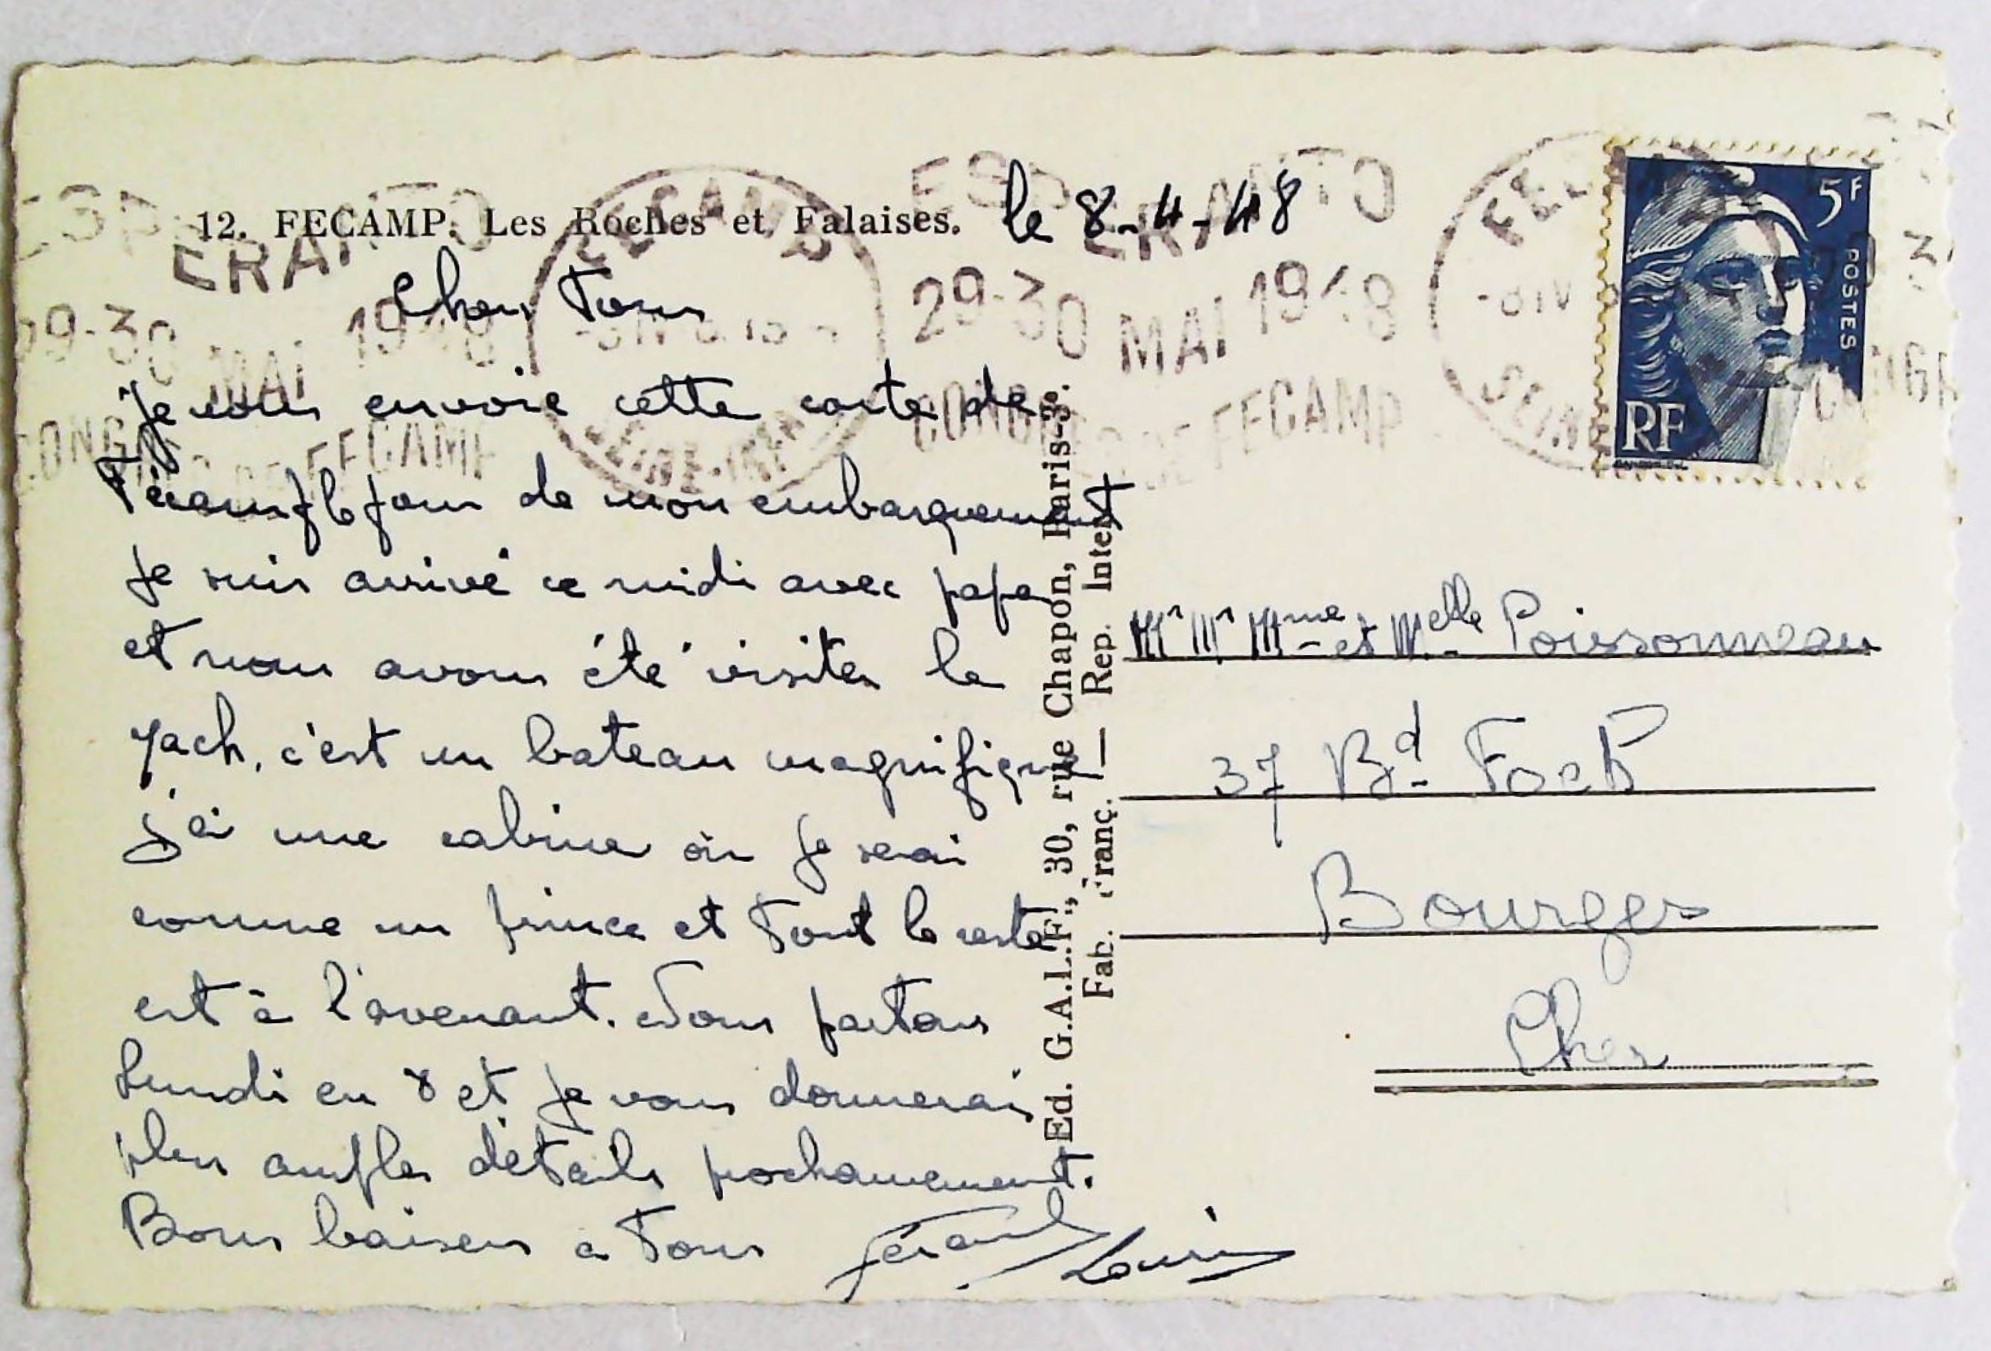 12. FECAMP. Les Roches et Falaises.
le 8-4-48
Chers Tous
je vous envoie cette carte de
Fécamp le jour de mon embarquement
je suis arrivé ce midi avec papa
et nous avons été visiter le
yach, c'est un bateau magnifique
j'ai une cabine où je serai
comme un prince et tout le reste
est à l'avenant. Nous partons
Lundi en 8 et je vous donnerai
plus amples détails prochainement.
Bons baisers a Tous
Gérard Louis
Ed. G.A.L.F., 30, rue Chapon, Paris-3e.
Fab. Franç. — Rep. Inter
ESPERANTO
29-30 MAI 1948
CONGRES DE FECAMP
FECAMP
SEINE-INF
5F
POSTES
RF
Mr Mr Mme et Melle Poissonneau
37 Bd Foch
Bourges
Cher